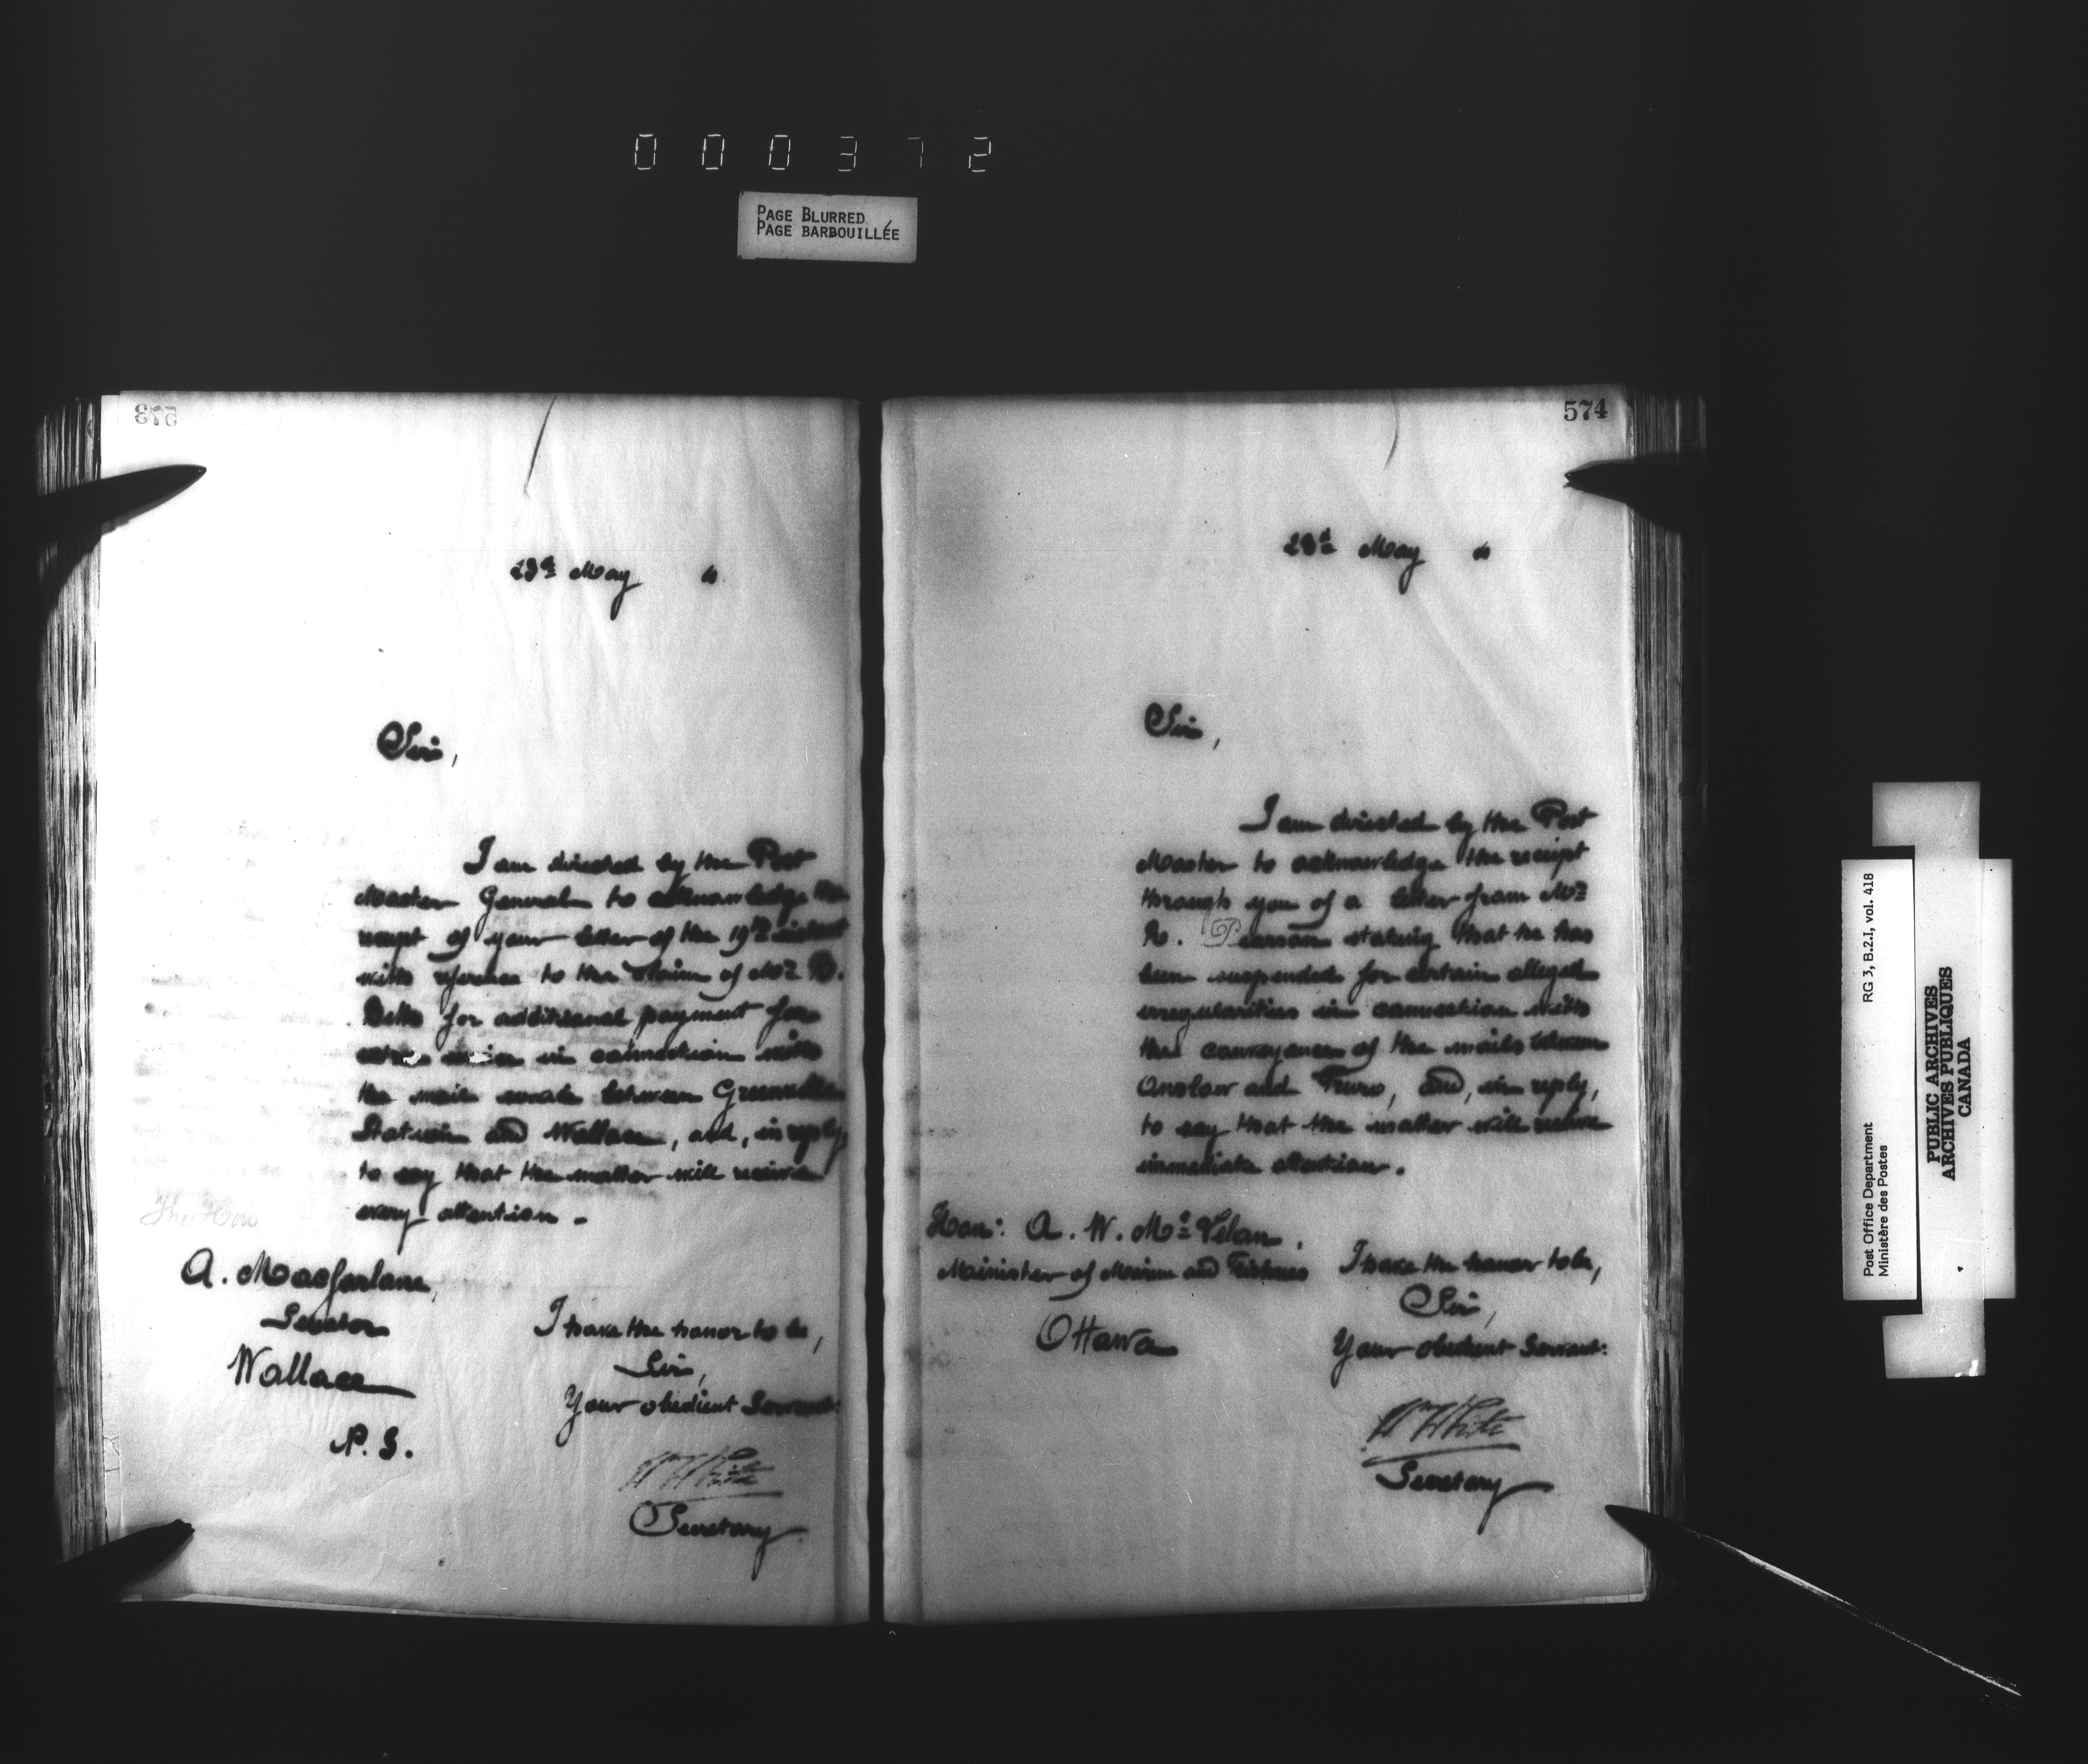 000372
PAGE BLURRED
PAGE BARBOUILLÉE
573
23d May "
Sir,
I am directed by the Post
Master General to acknowledge the
receipt of your letter of the 19th instant
with reference to the claim of Mr
for additional payment for
in connection with
the mail between Greenville
Station and Wallace, and, in reply,
to say that the matter will receive
every attention.
The Hon
A. Macfarlane,
Senator
Wallace
N. S.
I have the honor to be,
Sir,
Your obedient Servant:
Wm White
Secretary
574
23d May "
Sir,
I am directed by the Post
Master to acknowledge the receipt
through you of a letter from Mr
R. Pearson stating that he has
been suspended for certain alleged
irregularities in connection with
the conveyance of the mails between
Onslow and Truro, and, in reply,
to say that the matter will receive
immediate attention.
Hon: A. W. McLelan,
Minister of Marine and Fisheries
Ottawa
I have the honor to be,
Sir,
Your obedient Servant:
Wm White
Secretary
Post Office Department
Ministère des Postes
RG 3, B.2.I, vol. 418
PUBLIC ARCHIVES
ARCHIVES PUBLIQUES
CANADA